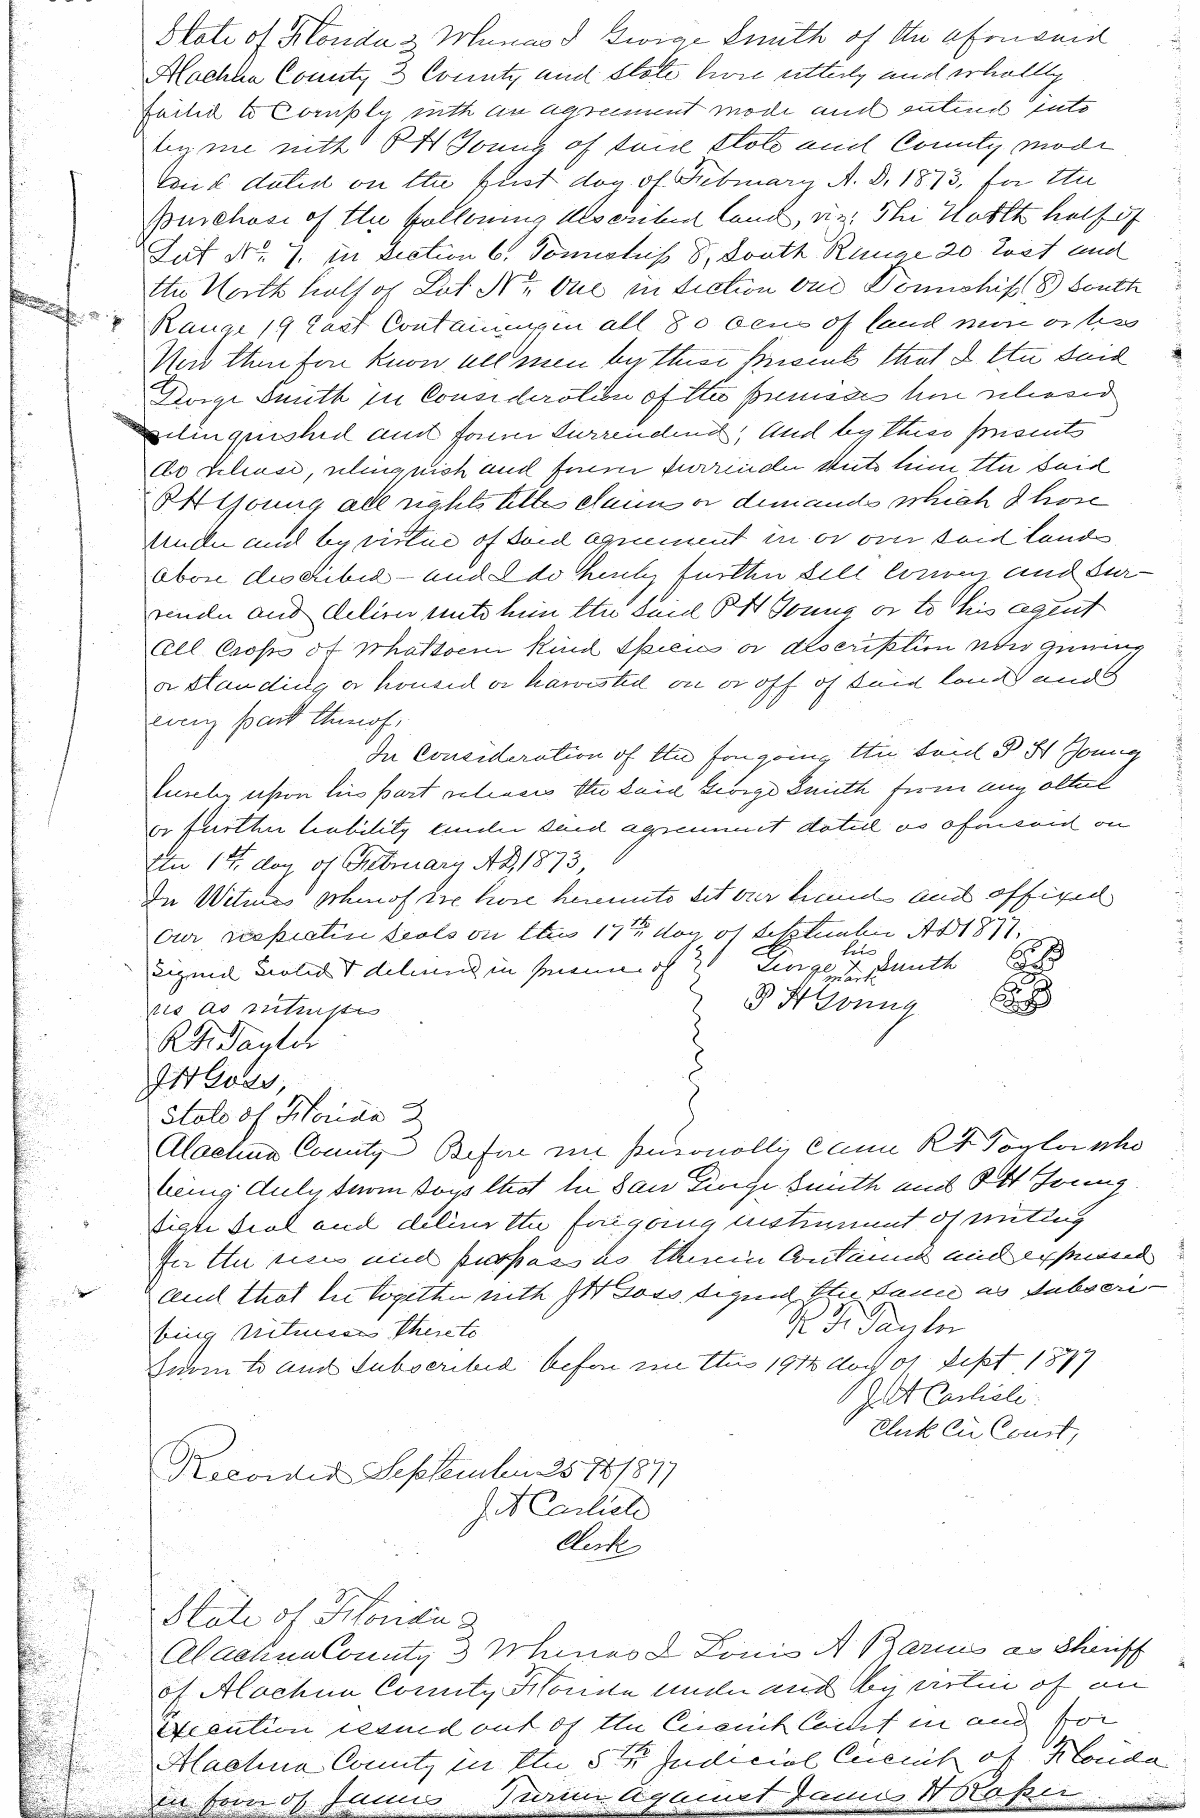 State of Florida } Whereas I George Smith of the aforesaid
Alachua County } County and State have utterly and wholly
failed to Comply with an agreement made and entered into
by me with P H Young of said State and County made
and dated on the first day of February A. D. 1873, for the
purchase of the following described land, viz: The North half of
Lot No. 7. in Section 6. Township 8, South Range 20 East and
the North half of Lot No. One in Section One Township (8) South
Range 19 East Containing in all 80 acres of land more or less
Now therefore Know all men by these presents that I the said
George Smith in Consideration of the premises have released
relinquished and forever surrendered; And by these presents
do release, relinquish and forever surrender unto him the said
P H Young all rights titles claims or demands which I have
under and by virtue of said agreement in or over said lands
above described - and I do hereby further sell convey and sur-
render and deliver unto him the said P H Young or to his agent
all Crops of whatsoever kind species or description now growing
or standing or housed or harvested on or off of said land and
every part thereof.
In Consideration of the foregoing the said P H Young
hereby upon his part releases the said George Smith from any other
or further liability under said agreement dated as aforesaid on
the 1st day of February AD, 1873,
In Witness whereof we have hereunto set our hands and affixed
our respective seals on this 17th day of September AD 1877.
Signed Sealed & delivered in presence of } George his X mark Smith
us as witnesses P H Young
R F. Taylor
J H Goss,
State of Florida }
Alachua County } Before me personally came R F Taylor who
being duly sworn says that he saw George Smith and P H Young
sign seal and deliver the foregoing instrument of writing
for the uses and purposes as therein Contained and expressed
and that he together with J H Goss signed the same as subscri-
bing witnesses thereto
R F. Taylor
Sworn to and Subscribed before me this 19th day of Sept. 1877
J. A Carlisle
Clerk Cir Court,
Recorded September 25th 1877
J. A Carlisle
Clerk
State of Florida }
Alachua County } Whereas I Louis A Barnes as Sheriff
of Alachua County Florida under and by virtue of an
execution issued out of the Circuit Court in and for
Alachua County in the 5th Judicial Circuit of Florida
in favor of James Against James H Roper